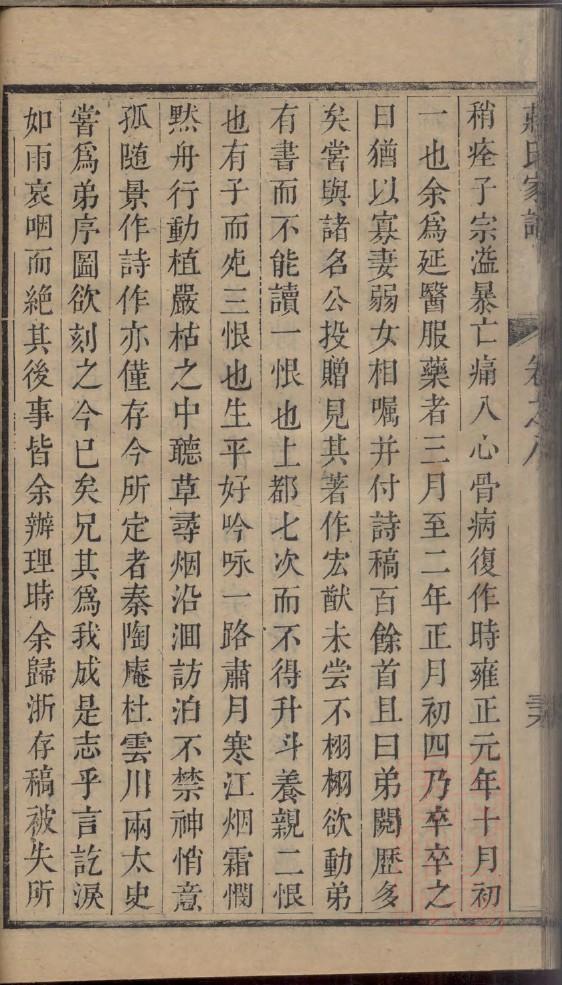 氏家
卷之八
稍痊子宗溢暴亡痛入心骨病復作時雍正元年十月初
一也余爲延醫服藥者三月至二年正月初四乃卒卒之
日猶以寡妻弱女相嘱并付詩稿百餘首且曰弟閱歷多
矣嘗與諸名公投贈見其著作宏猷未尝不栩栩欲動弟
有書而不能讀一恨也上都七次而不得升斗養親二恨
也有子而死三恨也生平好吟咏一路肅月寒江烟霜憫
黙舟行動植嚴枯之中聽草尋烟沿洄訪泊不禁神悄意
孤随景作詩作亦僅存今所定者秦陶庵杜雲川兩太史
嘗爲弟序圖欲刻之今已矣兄其爲我成是志乎言訖淚
如雨哀咽而絶其後事皆余辦理時余歸浙存稿被失所